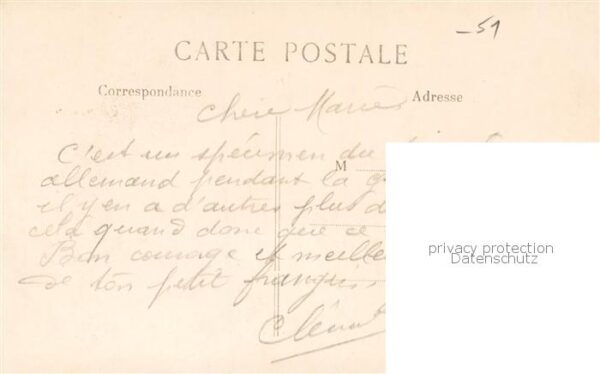 - 51
CARTE POSTALE
Correspondance
Adresse
Chère Marie
C'est un spécimen du
M
allemand pendant la
il y en a d'autres plus
cela quand donc que ce
Bon courage et
de ton petit
privacy protection
Datenschutz